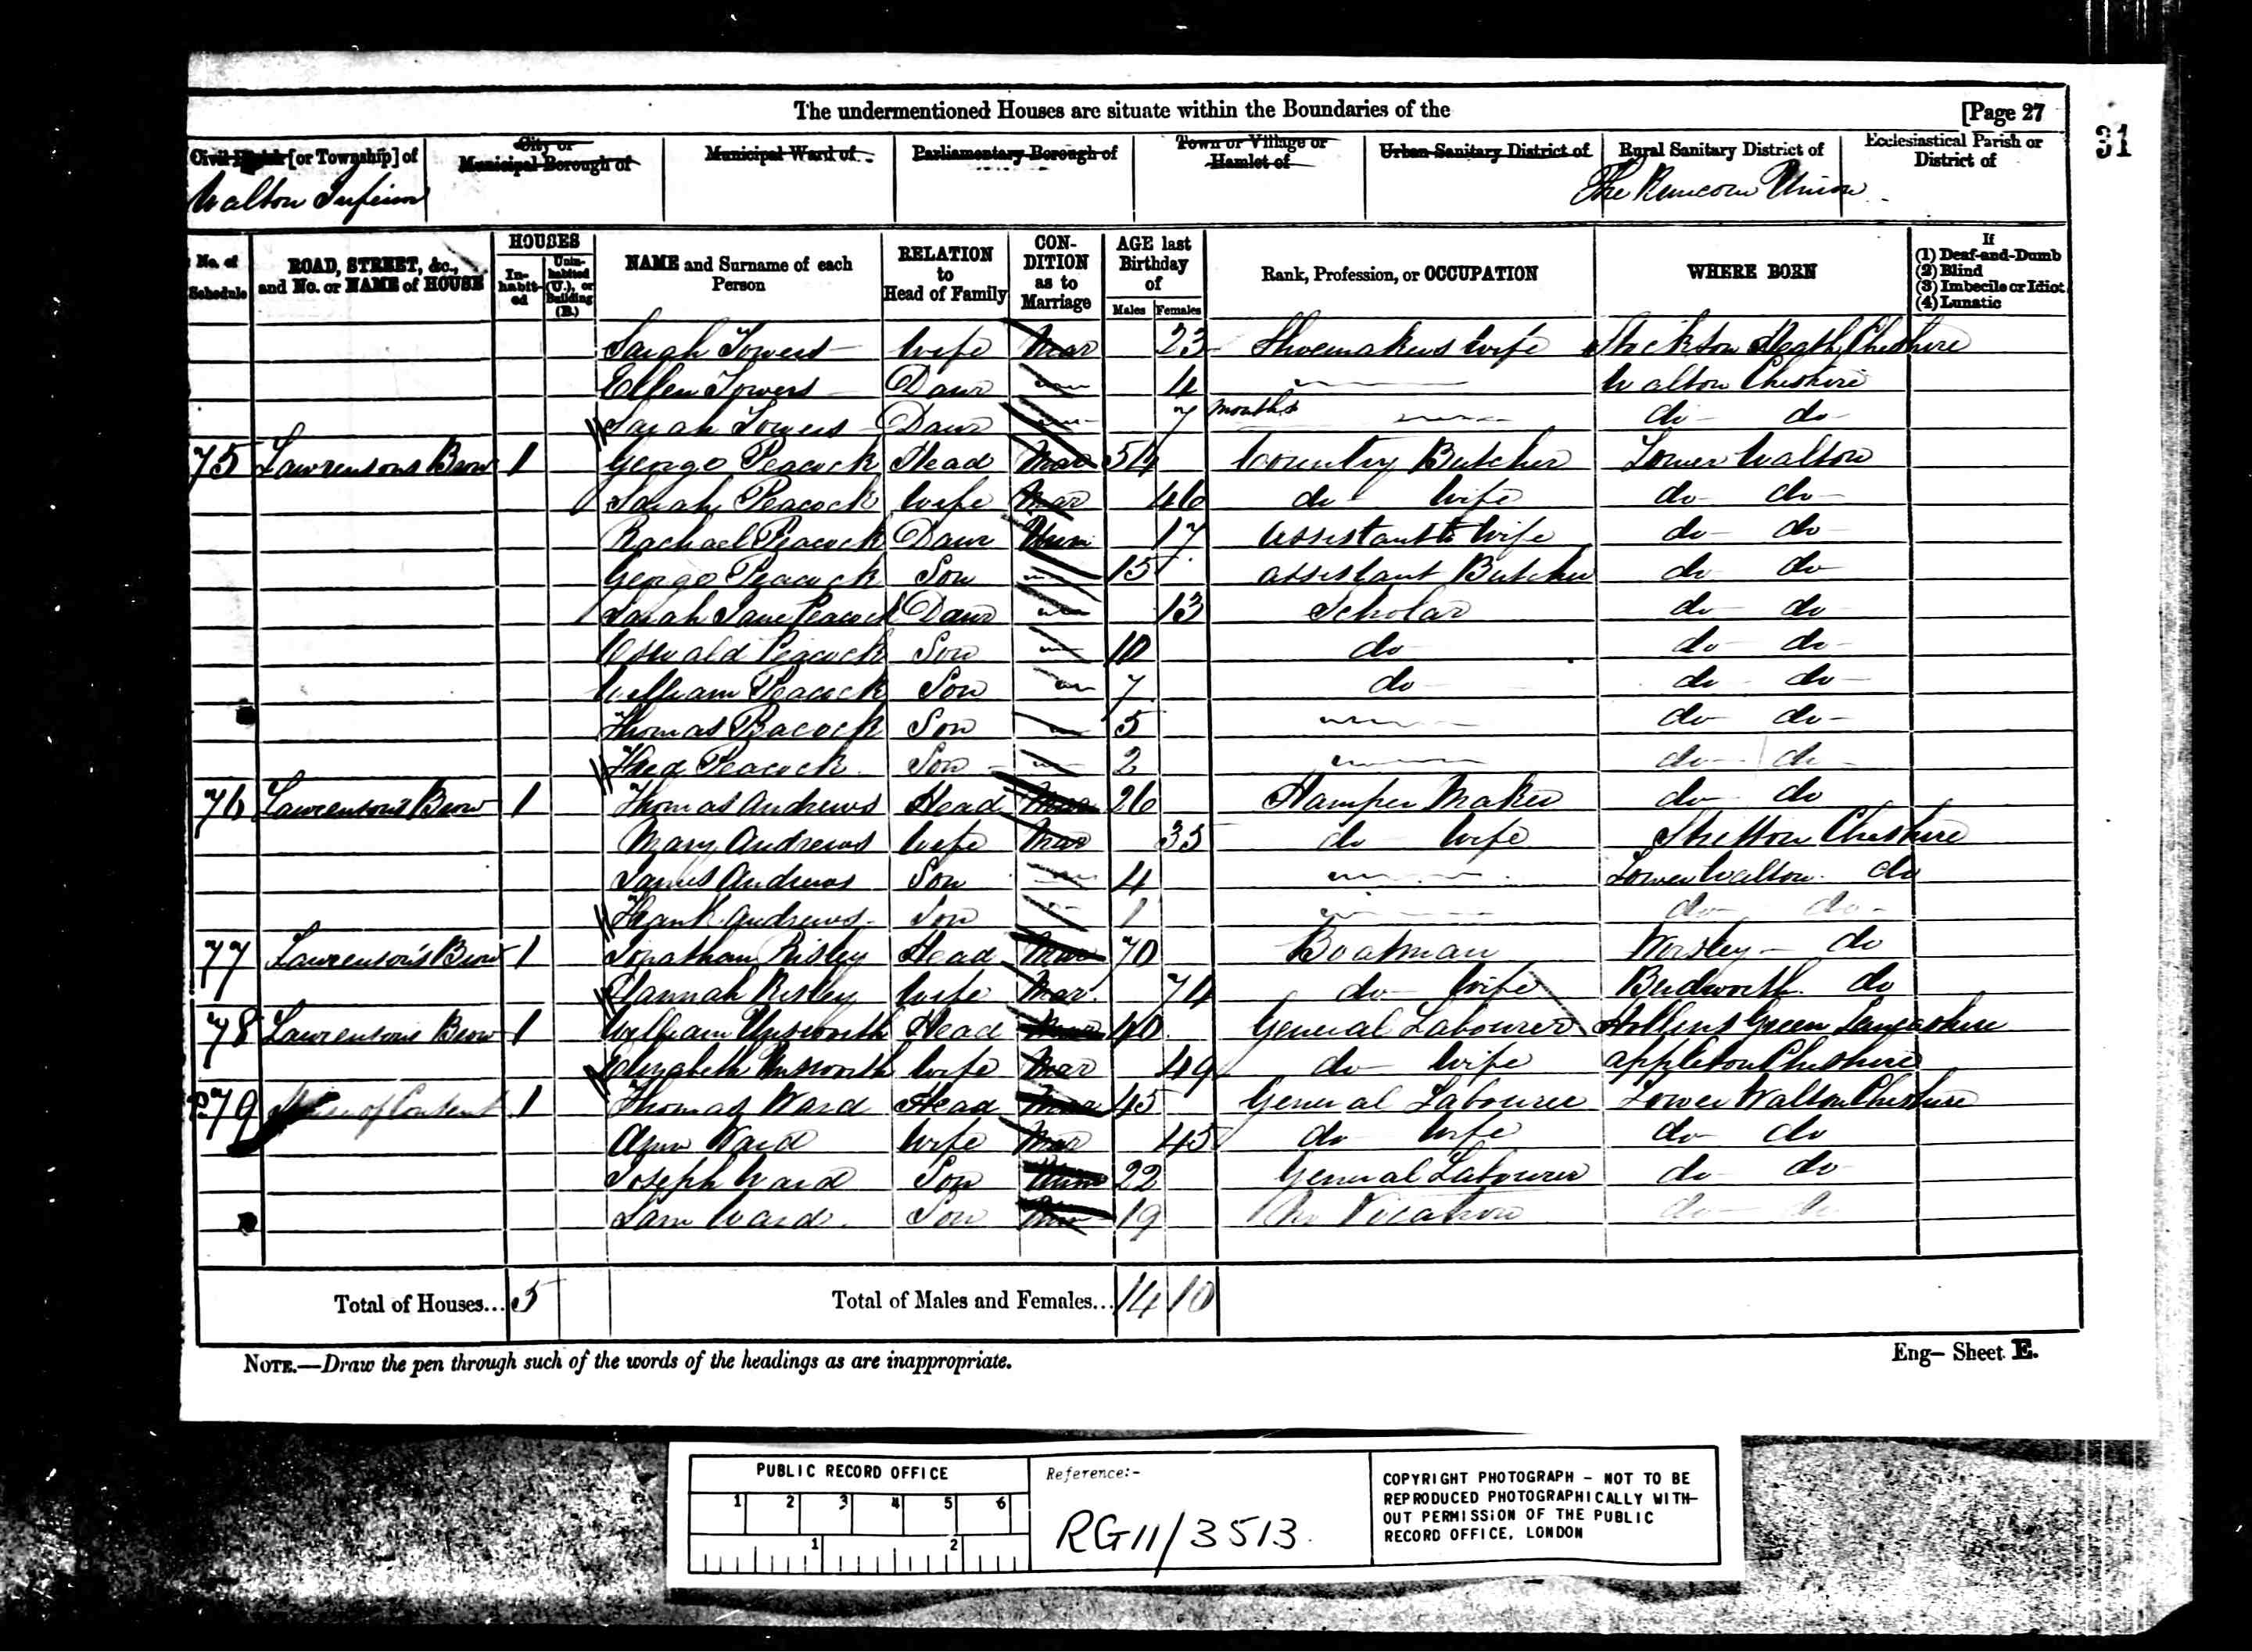 The undermentioned Houses are situate within the Boundaries of the [Page 27
31
Civil Parish [or Township] of City or Municipal Borough of Municipal Ward of Parliamentary Borough of Town or Village or Hamlet of Urban Sanitary District of Rural Sanitary District of Ecclesiastical Parish or District of
Walton Inferior The Runcorn Union
No. of Schedule ROAD, STREET, &c., and No. or NAME of HOUSE HOUSES In-habit-ed Unin-habited (U.), or Building (B.) NAME and Surname of each Person RELATION to Head of Family CON-DITION as to Marriage AGE last Birthday of Males Females Rank, Profession, or OCCUPATION WHERE BORN If (1) Deaf-and-Dumb (2) Blind (3) Imbecile or Idiot (4) Lunatic
Sarah Towers Wife Mar 23 Shoemakers Wife Stockton Heath Cheshire
Ellen Towers Daur 4 Walton Cheshire
Sarah Towers Daur 7 months do do
75 Lawrensons Brow 1 George Peacock Head Mar 54 Country Butcher Lower Walton
Sarah Peacock Wife Mar 46 do wife do do
Rachael Peacock Daur Unm 17 Assistant to Wife do do
George Peacock Son 15 assistant Butcher do do
Sarah Jane Peacock Daur 13 Scholar do do
Oswald Peacock Son 10 do do do
William Peacock Son 7 do do do
Thomas Peacock Son 5 do do
Fred Peacock Son 2 do do
76 Lawrensons Brow 1 Thomas Andrews Head Mar 26 Hamper Maker do do
Mary Andrews Wife Mar 35 do wife Stretton Cheshire
James Andrews Son 4 Lower Walton do
Frank Andrews Son 1 do do
77 Lawrenson's Brow 1 Jonathan Risley Head Mar 70 Boatman Worsley do
Hannah Risley Wife Mar 74 do wife Budworth do
78 Lawrensons Brow 1 William Unsworth Head Mar 40 General Labourer Hollins Green Lancashire
Elizabeth Unsworth Wife Mar 49 do wife appleton Cheshire
79 of Content 1 Thomas Ward Head Mar 45 General Labourer Lower Walton Cheshire
Ann Ward Wife Mar 45 do wife do do
Joseph Ward Son Unm 22 General Labourer do do
Sam Ward Son Unm 19 No Vocation do do
Total of Houses... 5 Total of Males and Females... 14 10
NOTE.—Draw the pen through such of the words of the headings as are inappropriate. Eng— Sheet E.
PUBLIC RECORD OFFICE
1 2 3 4 5 6
1 2
Reference:-
RG11/3513
COPYRIGHT PHOTOGRAPH - NOT TO BE
REPRODUCED PHOTOGRAPHICALLY WITH-
OUT PERMISSION OF THE PUBLIC
RECORD OFFICE, LONDON